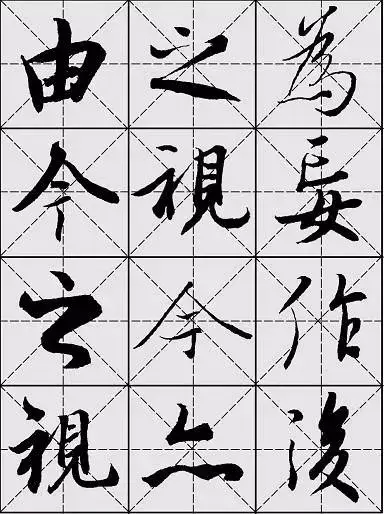 為妄作後
之視今亦
由今之視